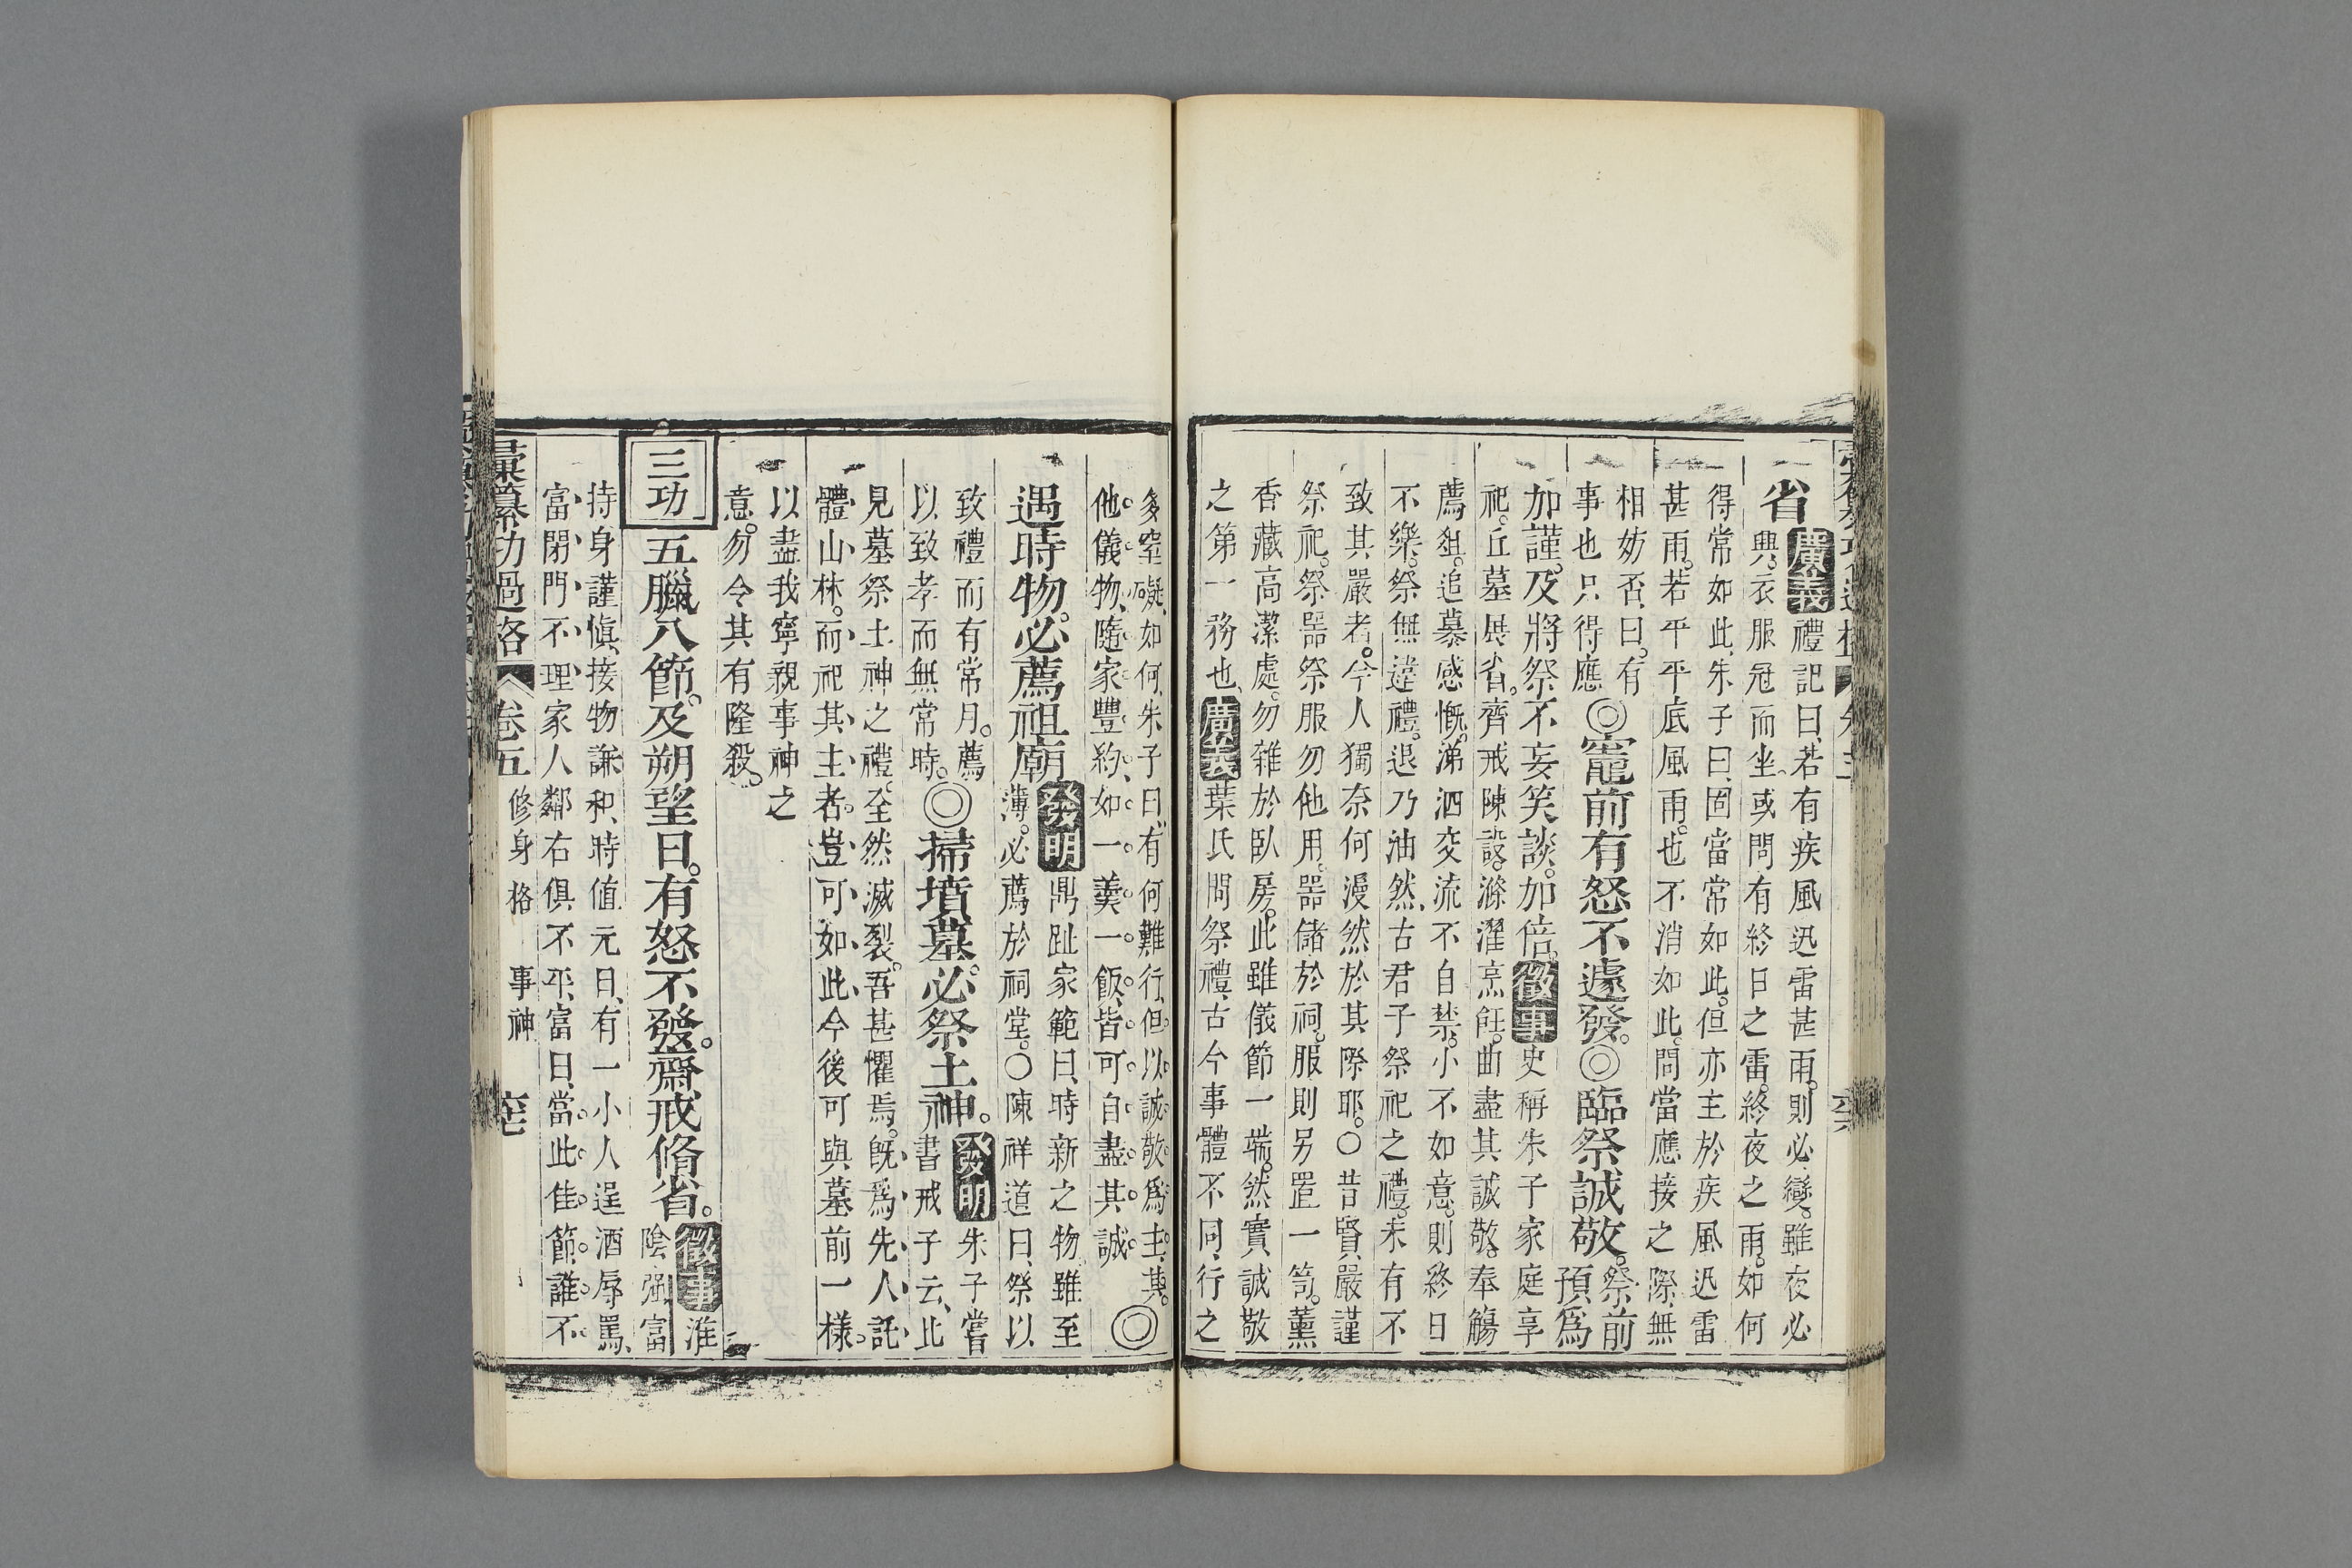 省
廣義
禮記曰、若有疾風迅雷甚雨。則必變。雖夜必
興。衣服冠而坐。或問有終日之雷。終夜之雨。如何
得常如此。朱子曰、固當常如此。但亦主於疾風迅雷
甚雨。若平平底風雨。也不消如此。問當應接之際、無
相妨否、曰。有
事也只得應
◎竈前有怒不遽發。◎臨祭誠敬。
祭前
預爲
加謹。及將祭不妄笑談。加倍。
徵事
史稱朱子家庭享
祀。丘墓展省。齊戒陳設。滌濯烹飪。曲盡其誠敬。奉觴
薦俎。追慕感慨。涕泗交流不自禁。小不如意。則終日
不樂。祭無違禮。退乃油然、古君子祭祀之禮。未有不
致其嚴者。今人獨奈何漫然於其際耶。○昔賢嚴謹
祭祀。祭器祭服勿他用。器儲於祠。服則另置一笥。薰
香藏高潔處。勿雜於臥房。此雖儀節一端。然實誠敬
之第一務也、
廣義
葉氏問祭禮、古今事體不同、行之
多窒礙、如何、朱子曰、有何難行、但以誠敬爲主、其。
他儀物、隨家豐約、如一羹一飯、皆可自盡其誠
◎
遇時物。必薦祖廟
發明
鼎趾家範曰、時新之物雖至
薄。必薦於祠堂。○陳祥道曰、祭以
致禮而有常月。薦
以致孝而無常時。
◎掃墳墓。必祭土神。
發明
朱子嘗
書戒子云、比
見墓祭土神之禮。全然滅裂。吾甚懼焉。既爲先人託
體山林。而祀其主者。豈可如此今後可與墓前一樣。
以盡我寧親事神之
意。勿令其有隆殺。
三功
五臘八節。及朔望日。有怒不發。齋戒脩省。
徵事
淮
陰强富
持身謹愼、接物謙和、時値元日、有一小人逞酒辱罵、
富閉門不理家人鄰右俱不平、富曰、當此佳節、誰不
彙纂功過格
卷五
修身格
事神